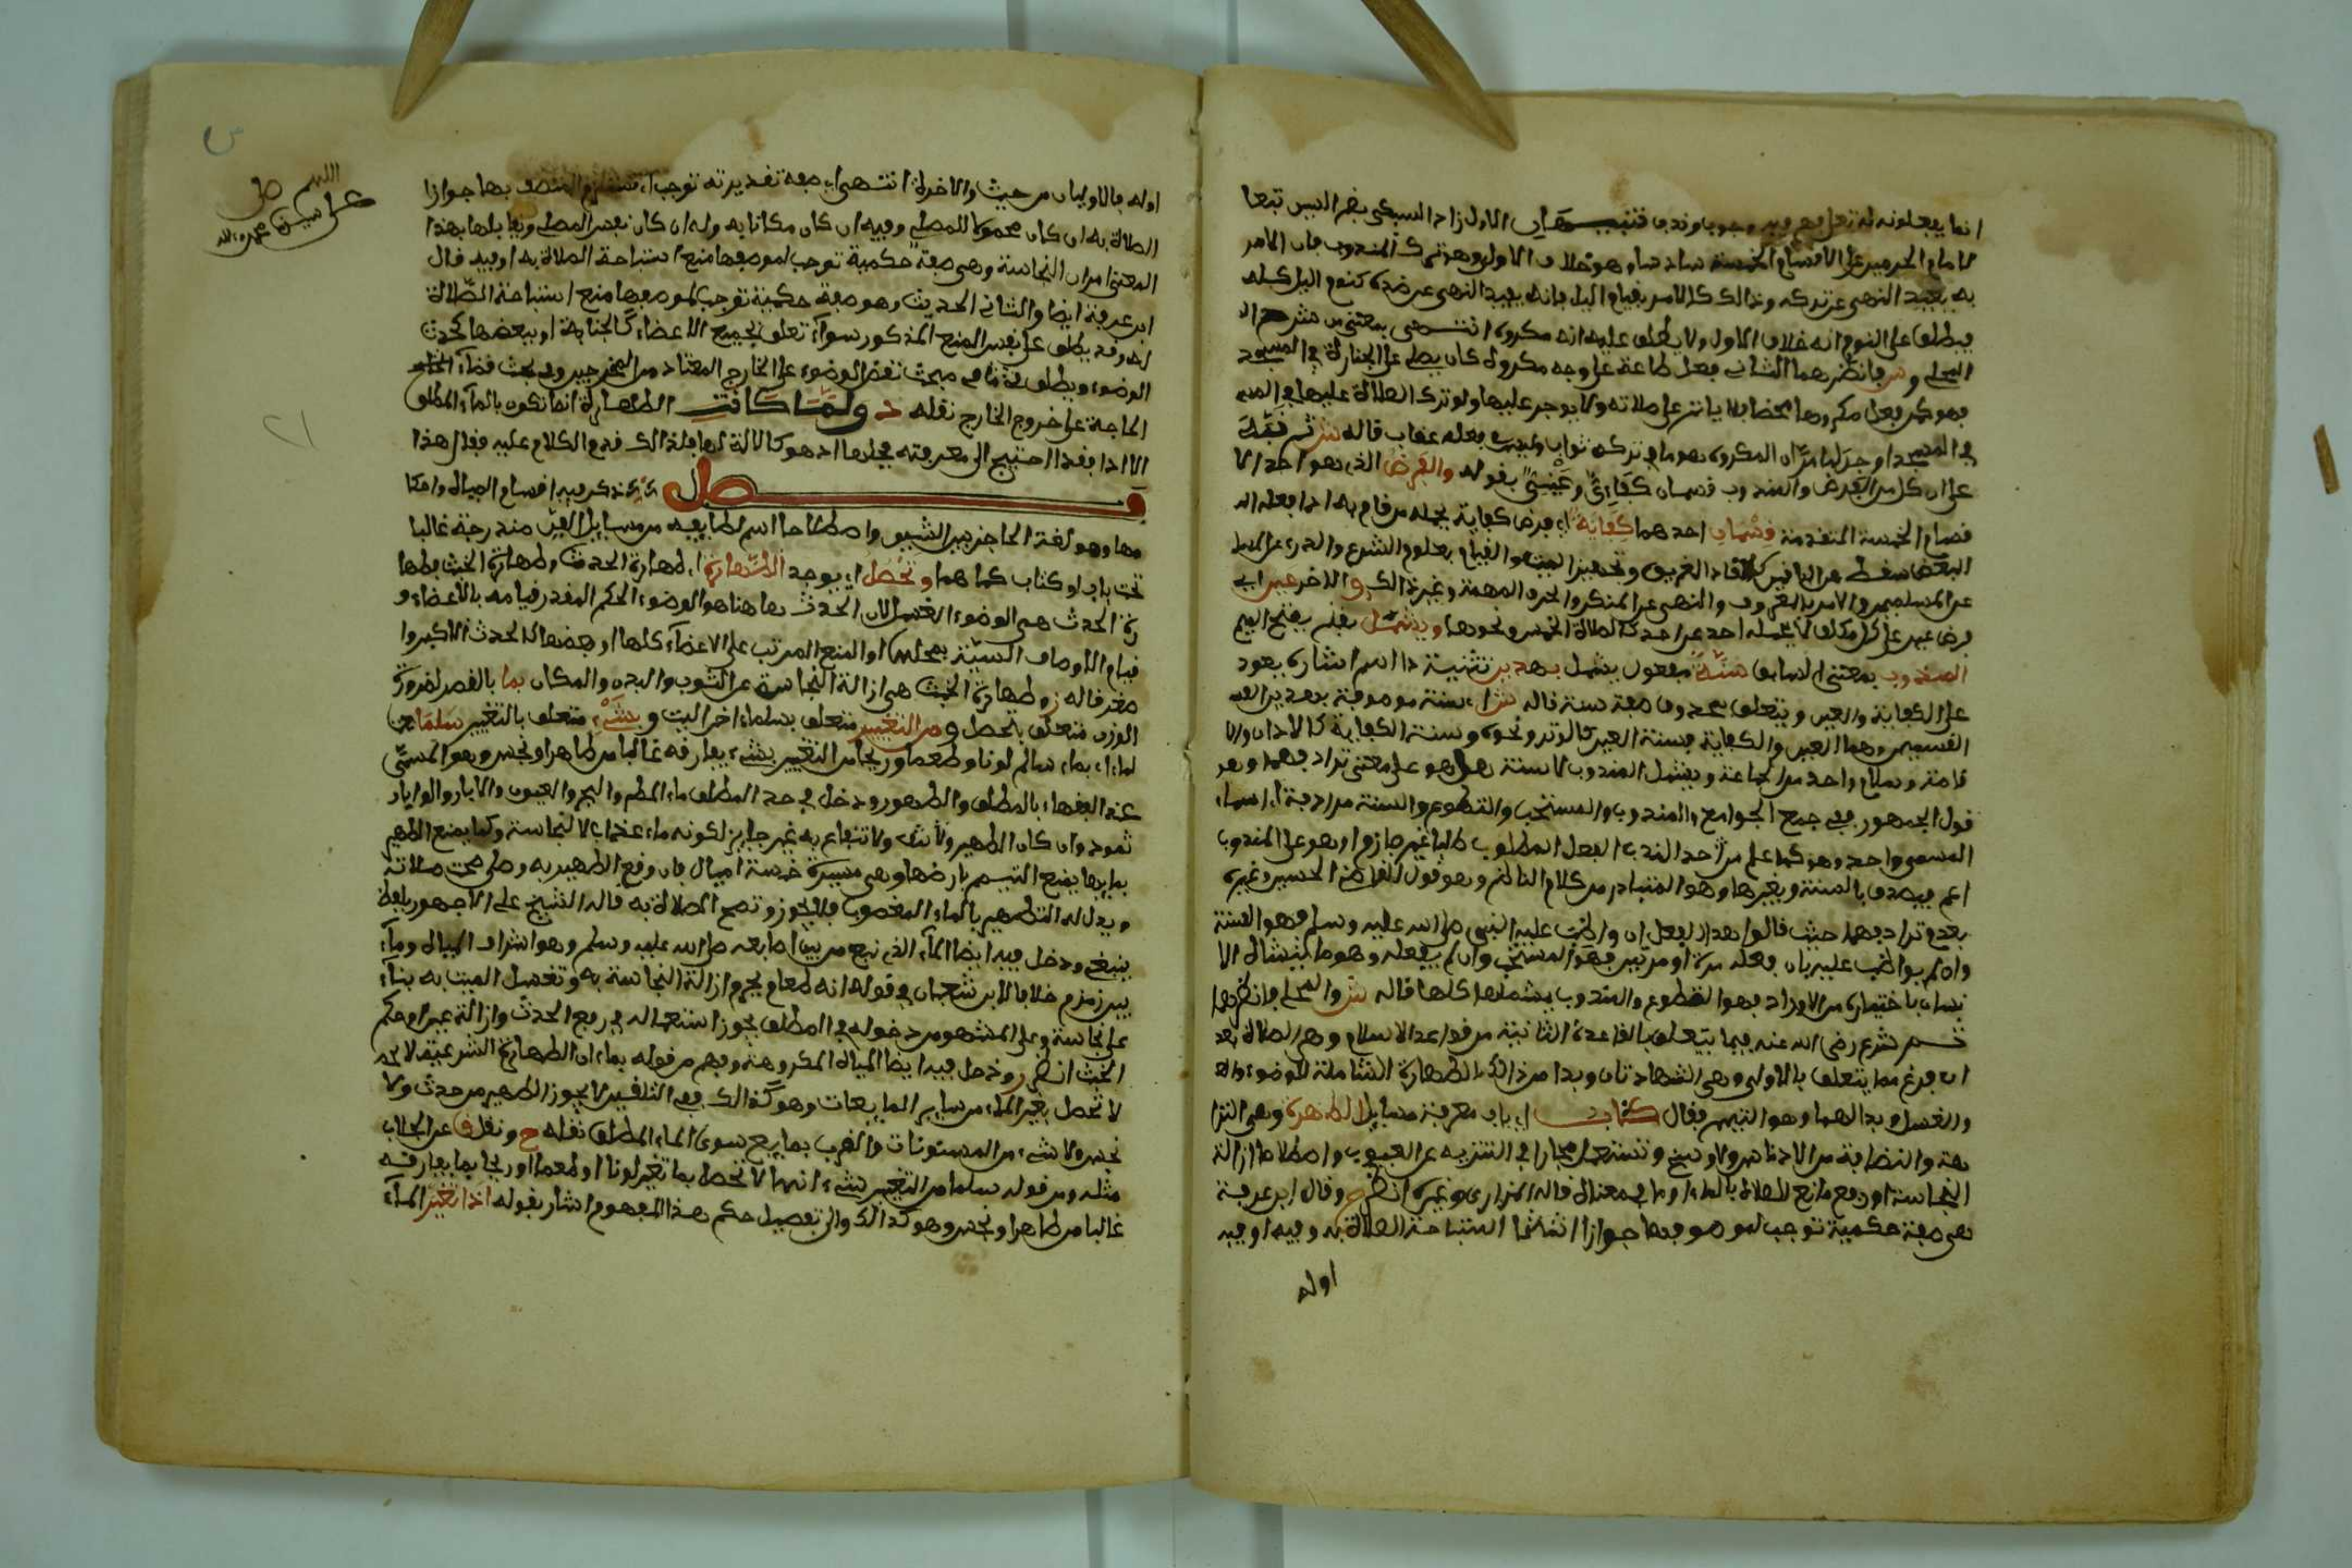 انما يفعلونه له تعلم معروف وجوبا وندبا فتنبيهان الاول زاد السبكي بفتح السين تبعا
لامام الحرمين على الاقسام الخمسة سادسا وهو خلاف الاولى وهو ترك المندوب فان الامر
به يفيد النهي عن تركه وذلك كالامر بقيام اليل فانه يفيد النهي عن ضده كنوم اليل كله
فيطلق على النوم انه خلاف الاولى ولا يطلق عليه انه مكروه انتهى بمعنى من شرح
المحلي وش فانظرهما الثاني فعل طاعة على وجه مكروه كان يصلي على الجنازة في المسجد
فهو كمن فعل مكروها محضا فلا ياثر على صلاته ولا يوجر عليها ولو ترك الصلاة عليها في
في المسجد اوجر لما مر ان المكروه هو ما في تركه ثواب وليس في فعله عقاب قاله ش ثم نبه
على ان كل من الفرض والمندوب قسمان كفاءي وعيني بقوله والفرض الذي هو احد الا
قسام الخمسة المتقدمة قسمان احدهما كفاية اي فرض كفاية يحمله من قام به اذا فعله
البعض سقط عن الباقين كانقاذ الغريق وتجهيز الميت والقيام بعلوم الشرع والذب عن
عن المسلمين والامر بالمعروف والنهي عن المنكر والحرف المهمة وغير ذالك والاخر عين اي
فرض عين على كل مكلف لا يحمله احد عن احد كالصلاة الخمس ونحوها ويشمل بفتح الميم
المندوب بمعنى السابق سنة مفعول يشمل بهدين تثنية ذا اسم اشارة يعود
على الكفاية والعين ويتعلق بمحذوف صفة سنة قاله ش اي سنة موصوفة بهذين
القسمين وهما العين والكفاية فسنة العين كالوتر ونحوه وسنة الكفاية كالاذان والا
قامة وسلام واحد من الجماعة ويشمل المندوب لا سنة هل هو على معنى ترادفهما وهو
قول الجمهور ففي جمع الجوامع والمندوب والمستحب والتطوع والسنة مترادفة اي اسماء
المسمى واحد وهو كما علم من حد الندب الفعل المطلوب طلبا غير جازم او هو على المندوب
اعم فيصدق بالسنة وبغيرها وهو المتبادر من كلام الناظم وهو قول القاضي الحسين وغيره
بعدم ترادفهما حيث قالوا هذا الفعل ان واظب عليه النبي صلى الله عليه وسلم فهو السنة
وان لم يواظب عليه بان فعله مرة او مرتين فهو المستحب وان لم يفعله وهو ما ينشئه الا
نسان باختياره من الاوراد فهو التطوع والمندوب يشملها كلها قاله ش والمحلي فانظرهما
ثم شرع رضي الله عنه فيما يتعلق بالقاعدة الثانية من قواعد الاسلام وهي الصلاة بعد
ان فرغ مما يتعلق بالاولى وهي الشهادتان وبدا من ذالك بالطهارة الشاملة للوضوء
والغسل وبدالهما وهو التيمم فقال كتاب اي باب معرفة مسايل الطهرة وهي النزا
هة والنظافة من الادناس والاوسخ وتستعمل مجازا في التنزيه عن العيوب واصطلاحا ازالة
النجاسة او رفع مانع الصلاة بالماء او ما في معناه قاله المازري وغيره انظر ح وقال ابن عرفة
هي صفة حكمية توجب لموصوفها جوازا استباحة الصلاة به او فيه او
اوله
اوله فالاوليان من خبث والاخرة انتهى اي صفة تقديرية توجب اي تستلزم للمتصف بها جوازا
الصلاة به ان كان محمولا للمصلي وفيه ان كان مكانا به وله ان كان نفس المصلي ويقابلها بهذا
المعنى امران النجاسة وهي صفة حكمية توجب لموصوفها منع استباحة الصلاة به او فيه قال
ابن عرفة ايضا والثاني الحدث وهو صفة حكمية توجب لموصوفها منع استباحة الصلاة
له وقد يطلق على نفس المنع المذكور سواء تعلق بجميع الاعضاء كالجنابة او ببعضها كحدث
الوضوء ويطلق في مبحث نقض الوضوء على الخارج المعتاد من المخرجين وفي مبحث قضاء
الحاجة على خروج الخارج نقله د ولما كانت الطهارة انما تكون بالماء المطلق
الا اذا فقد احتيج الى معرفته فجلها اذ هو كالالة لها فلذالك قدم الكلام عليه فقال هذا
فصل يذكر فيه اقسام المياه واحكا
مها وهو لغة الحاجز بين الشيين واصطلاحا اسم لطايفة من مسايل الفن مندرجة غالبا
تحت باب او كتاب كما هما وتحصل اي توجد الطهارة اي طهارة الحدث وطهارة الخبث فطها
رة الحدث هي الوضوء الغسل لان الحدث هاهنا هو الوضوء الحكم المقدر قيامه بالاعضاء و
قيام الاوصاف الحسية بمحلها او المنع المرتب على الاعضاء كلها او بعضها كالحدث الاكبر وا
صغر قاله ز وطهارة الخبث هي ازالة النجاسة عن الثوب والبدن والمكان بما بالقصر لضرورة
الوزن متعلق بتحصل ومن التغيير متعلق بسلما اخر البيت وبشيء متعلق بالتغيير سلما
لما اي بماء سالم لونا وطعما وريحا من التغيير بشيء يفارقه غالبا من طاهر او نجس وهو المسمى
عند الفقهاء بالمطلق والطهور ودخل في حد المطلق ماء المطر والبحر والعيون والابار والو ابار
ثمود وان كان الطهير ولا شك والانتفاع به غير جايز لكونه ماء عذاب لا لنجاسة وكما يمنع التطهير
بمايها يمنع التيمم بارضها وهي مسيرة خمسة اميال فان وقع التطهير به وصلى صحت صلاته
ويدل له التطهير بالماء المغصوب فلا يجوز وتصح الصلاة به قاله الشيخ علي الاجهوري بلفظ
ينبغي ودخل فيه ايضا الماء الذي نبع من بين اصابعه صلى الله عليه وسلم وهو اشرف المياه وماء
بير زمزم خلافا لابن شعبان في قوله انه طعام يحرم ازالة النجاسة به وتغسيل الميت به بناء
على نجاسته وعلى المشهور من دخوله في المطلق يجوز استعماله في رفع الحدث وازالة عين او حكم
الخبث انظر ز ودخل فيه ايضا المياه المكروهة وفهم من قوله بماء ان الطهارة الشرعية
لا تحصل بغير الماء من ساير المايعات وهو كذالك ففي التلقين لا يجوز التطهير من حدث ولا
نجس ولا شيء من المسنونات والقرب بمايع سوى الماء المطلق نقله ح ونقل ق عن الجلاب
مثله ومن قوله سلما من التغيير بشيء انها لا تحصل بما تغير لونا او طعما او ريحا بما يفارقه
غالبا من طاهر او نجس وهو كذالك والى تفصيل حكم هذا المفهوم اشار بقوله اذا تغير الماء
اللهم صل
على سيدنا محمد
٢١